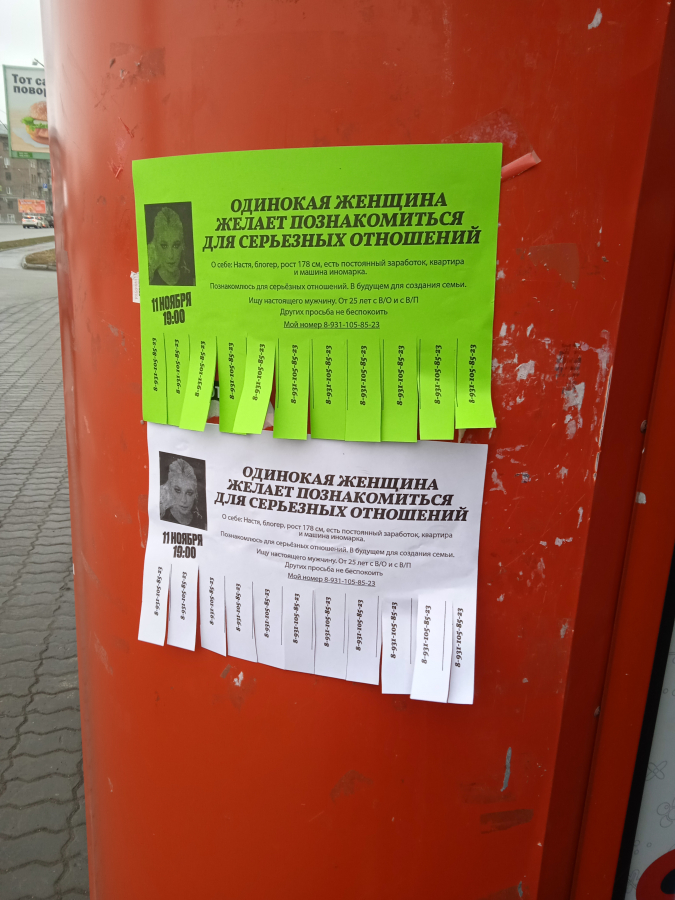 Тот
ОДИНОКАЯ ЖЕНЩИНА
ЖЕЛАЕТ ПОЗНАКОМИТЬСЯ
ДЛЯ СЕРЬЕЗНЫХ ОТНОШЕНИЙ
О себе: Настя, блогер, рост 178 см, есть постоянный заработок, квартира
и машина иномарка.
Познакомлюсь для серьёзных отношений. В будущем для создания семьи.
Ищу настоящего мужчину. От 25 лет с В/О и с В/П
Других просьба не беспокоить
Мой номер 8-931-105-85-23
11 НОЯБРЯ
19:00
8-931-105-85-23
8-931-105-85-23
8-931-105-85-23
8-931-105-85-23
8-931-105-85-23
8-931-105-85-23
8-931-105-85-23
8-931-105-85-23
8-931-105-85-23
8-931-105-85-23
8-931-105-85-23
ОДИНОКАЯ ЖЕНЩИНА
ЖЕЛАЕТ ПОЗНАКОМИТЬСЯ
ДЛЯ СЕРЬЕЗНЫХ ОТНОШЕНИЙ
О себе: Настя, блогер, рост 178 см, есть постоянный заработок, квартира
и машина иномарка.
Познакомлюсь для серьёзных отношений. В будущем для создания семьи.
Ищу настоящего мужчину. От 25 лет с В/О и с В/П
Других просьба не беспокоить
Мой номер 8-931-105-85-23
11 НОЯБРЯ
19:00
8-931-105-85-23
8-931-105-85-23
8-931-105-85-23
8-931-105-85-23
8-931-105-85-23
8-931-105-85-23
8-931-105-85-23
8-931-105-85-23
8-931-105-85-23
8-931-105-85-23
8-931-105-85-23